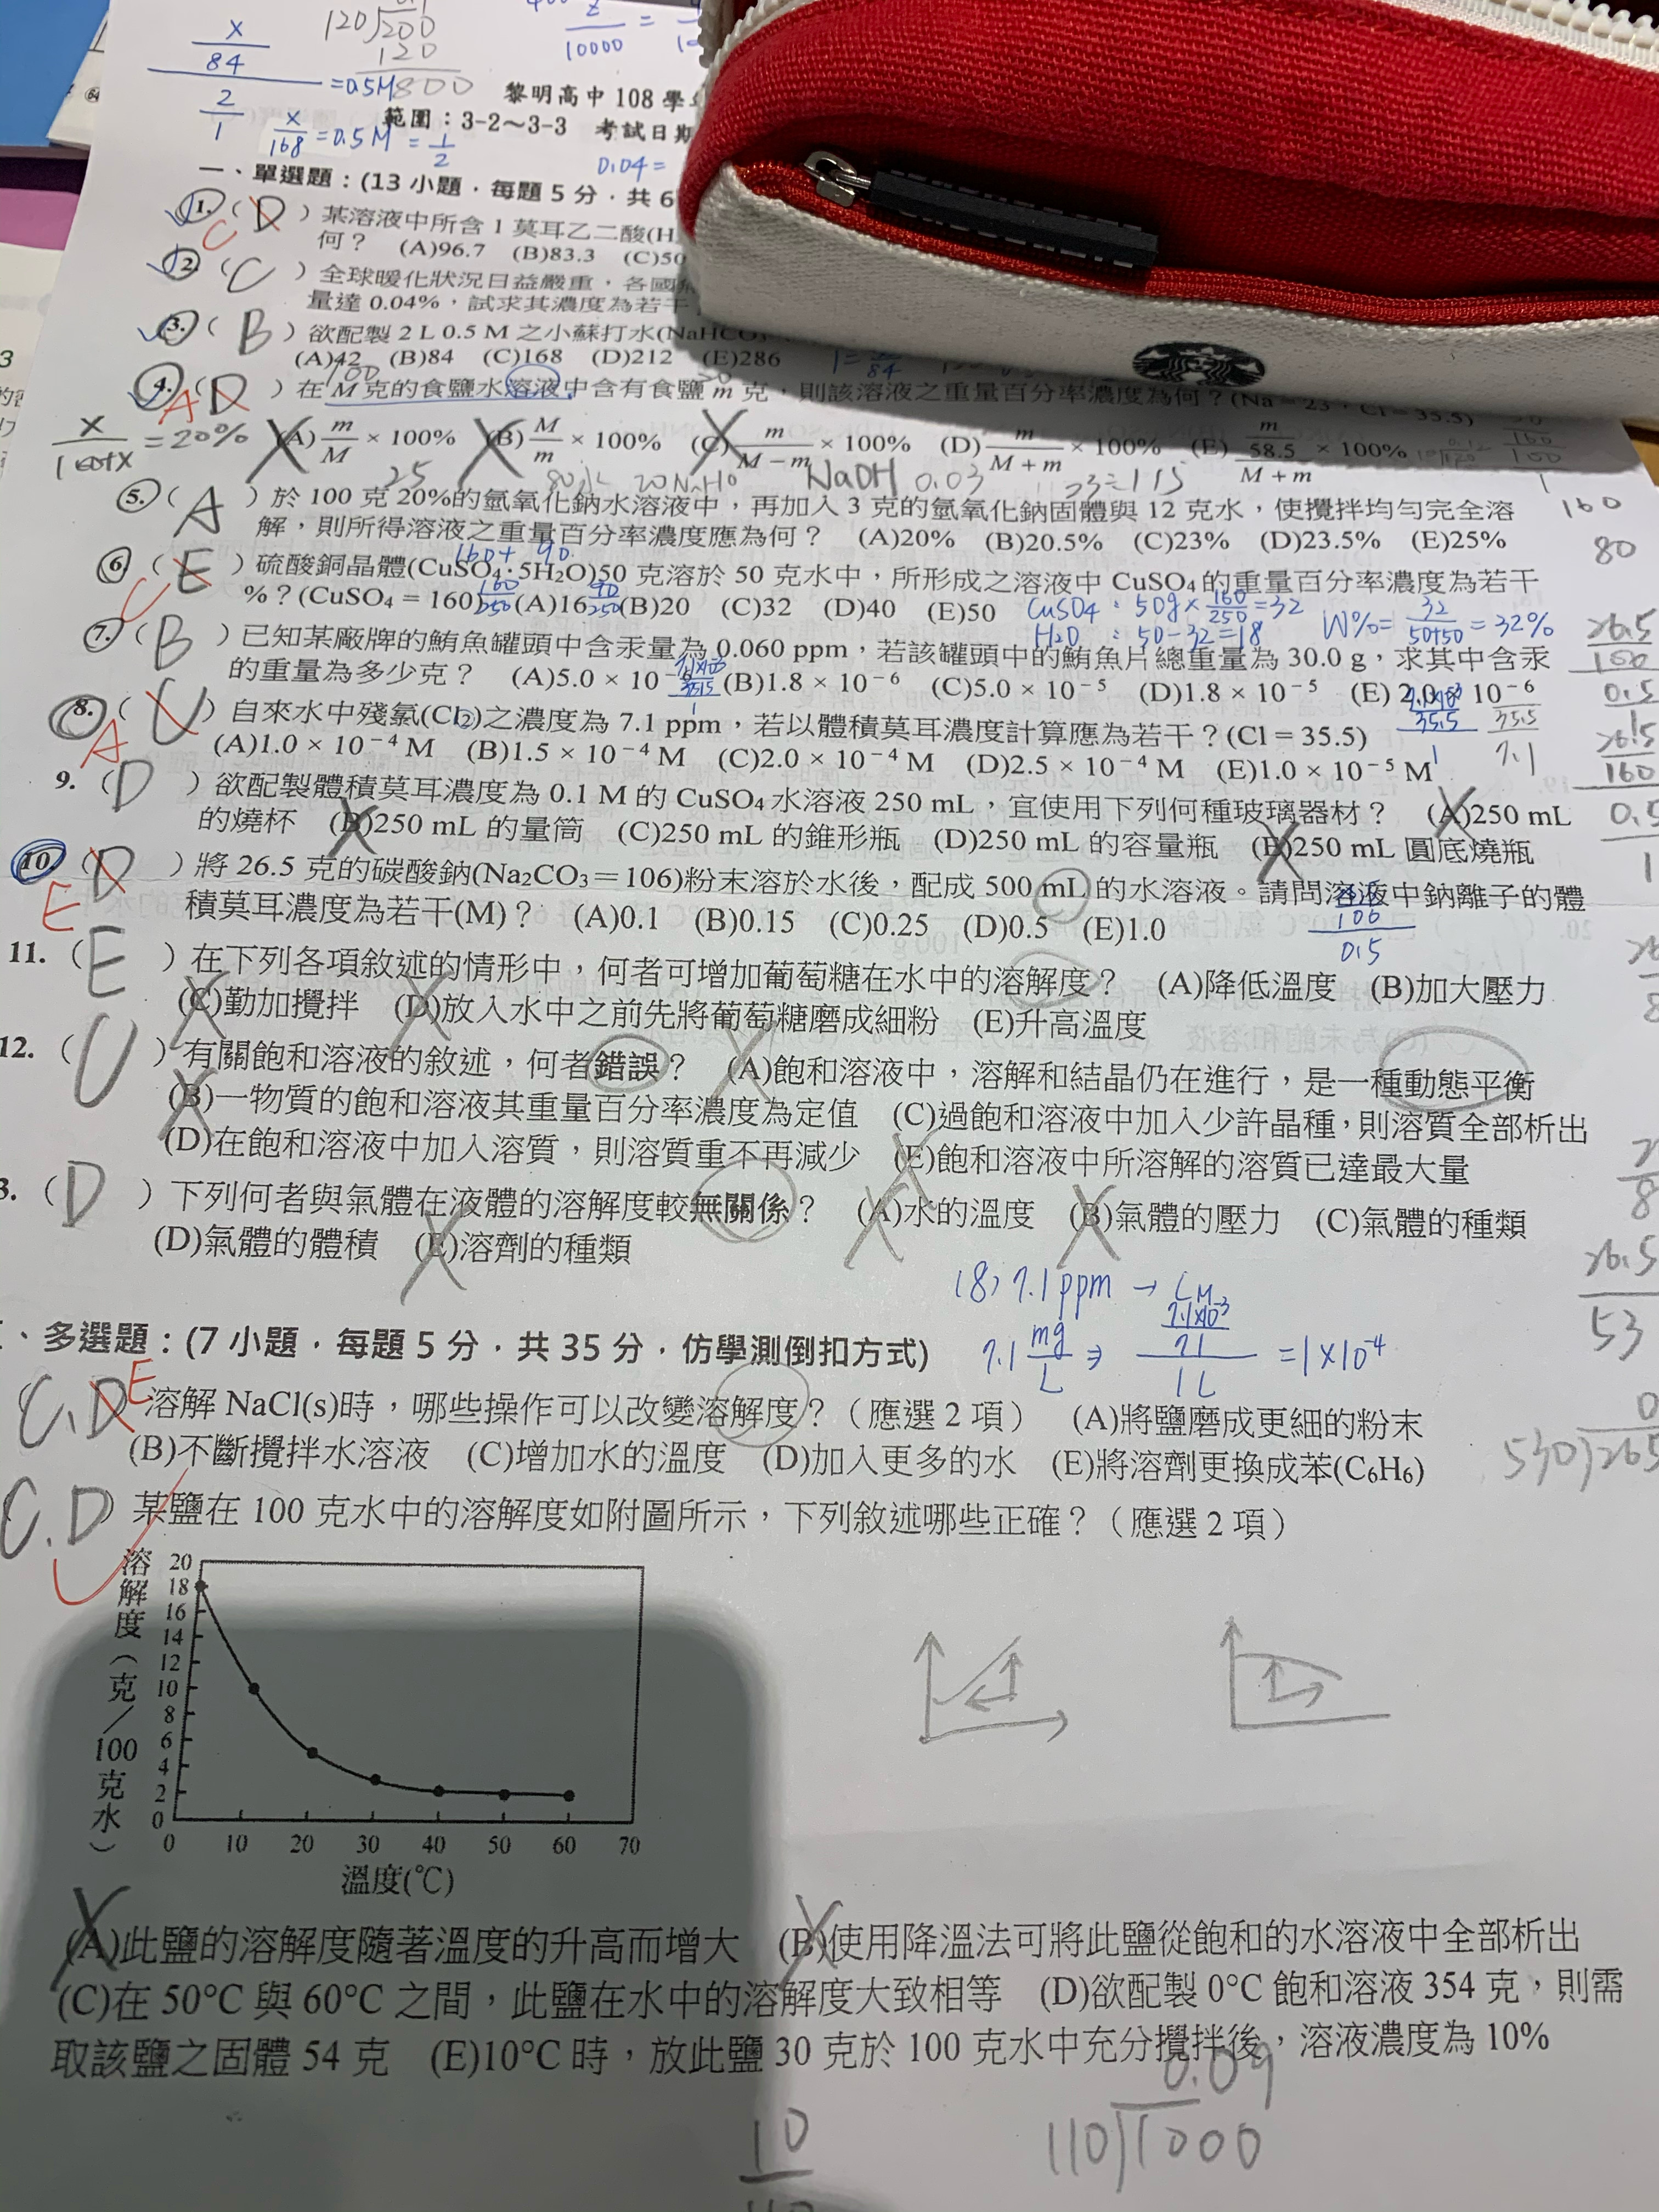 x/84
2/1
=0.5M
120)200
120
800
z/10000 =
黎明高中 108 學
x/168 = 0.5M = 1/2
範圍：3-2～3-3 考試日期
0.04 =
一、單選題：(13 小題，每題 5 分，共 6
1. ( D ) 某溶液中所含 1 莫耳乙二酸(H
C
何？ (A)96.7 (B)83.3 (C)50
2. ( C ) 全球暖化狀況日益嚴重，各國
量達 0.04%，試求其濃度為若干
3. ( B ) 欲配製 2 L 0.5 M 之小蘇打水(NaHCO
(A)42 (B)84 (C)168 (D)212 (E)286
4. ( D ) 在 M 克的食鹽水溶液中含有食鹽 m 克，則該溶液之重量百分率濃度為何？(Na = 23，Cl = 35.5)
A
x/(100+x) = 20%
(A) m/M × 100% (B) M/m × 100% (C) m/(M－m) × 100% (D) m/(M＋m) × 100% (E) (m/58.5)/(M＋m) × 100%
25 80水 20NaOH NaOH 0.03
5. ( A ) 於 100 克 20%的氫氧化鈉水溶液中，再加入 3 克的氫氧化鈉固體與 12 克水，使攪拌均勻完全溶
解，則所得溶液之重量百分率濃度應為何？ (A)20% (B)20.5% (C)23% (D)23.5% (E)25%
160
80
160+ 90
6. ( E ) 硫酸銅晶體(CuSO₄·5H₂O)50 克溶於 50 克水中，所形成之溶液中 CuSO₄ 的重量百分率濃度為若干
C
%？(CuSO₄ = 160) (A)16 (B)20 (C)32 (D)40 (E)50
160/250 90/250
CuSO4：50g×160/250=32
H2O：50-32=18
W%=32/(50+50)=32%
7. ( B ) 已知某廠牌的鮪魚罐頭中含汞量為 0.060 ppm，若該罐頭中的鮪魚片總重量為 30.0 g，求其中含汞
的重量為多少克？ (A)5.0 × 10⁻ (B)1.8 × 10⁻⁶ (C)5.0 × 10⁻⁵ (D)1.8 × 10⁻⁵ (E) 2.0 10⁻⁶
8. ( C ) 自來水中殘氯(Cl₂)之濃度為 7.1 ppm，若以體積莫耳濃度計算應為若干？(Cl = 35.5)
A
(A)1.0 × 10⁻⁴ M (B)1.5 × 10⁻⁴ M (C)2.0 × 10⁻⁴ M (D)2.5 × 10⁻⁴ M (E)1.0 × 10⁻⁵ M
9. ( D ) 欲配製體積莫耳濃度為 0.1 M 的 CuSO₄ 水溶液 250 mL，宜使用下列何種玻璃器材？ (A)250 mL
的燒杯 (B)250 mL 的量筒 (C)250 mL 的錐形瓶 (D)250 mL 的容量瓶 (E)250 mL 圓底燒瓶
10. ( D ) 將 26.5 克的碳酸鈉(Na₂CO₃＝106)粉末溶於水後，配成 500 mL 的水溶液。請問溶液中鈉離子的體
E
積莫耳濃度為若干(M)？ (A)0.1 (B)0.15 (C)0.25 (D)0.5 (E)1.0
106
0.5
11. ( E ) 在下列各項敘述的情形中，何者可增加葡萄糖在水中的溶解度？ (A)降低溫度 (B)加大壓力
(C)勤加攪拌 (D)放入水中之前先將葡萄糖磨成細粉 (E)升高溫度
12. ( C ) 有關飽和溶液的敘述，何者錯誤？ (A)飽和溶液中，溶解和結晶仍在進行，是一種動態平衡
(B)一物質的飽和溶液其重量百分率濃度為定值 (C)過飽和溶液中加入少許晶種，則溶質全部析出
(D)在飽和溶液中加入溶質，則溶質重不再減少 (E)飽和溶液中所溶解的溶質已達最大量
3. ( D ) 下列何者與氣體在液體的溶解度較無關係？ (A)水的溫度 (B)氣體的壓力 (C)氣體的種類
(D)氣體的體積 (E)溶劑的種類
26.5
53
(8) 7.1ppm → CM
7.1 mg/L ⇒ (7.1×10⁻³/71)/1L = 1×10⁻⁴
、多選題：(7 小題，每題 5 分，共 35 分，仿學測倒扣方式)
C.D E 溶解 NaCl(s)時，哪些操作可以改變溶解度？（應選 2 項） (A)將鹽磨成更細的粉末
(B)不斷攪拌水溶液 (C)增加水的溫度 (D)加入更多的水 (E)將溶劑更換成苯(C₆H₆)
530)265
C.D ) 某鹽在 100 克水中的溶解度如附圖所示，下列敘述哪些正確？（應選 2 項）
溶解度（克／100克水）
20
18
16
14
12
10
8
6
4
2
0
0 10 20 30 40 50 60 70
溫度(℃)
(A)此鹽的溶解度隨著溫度的升高而增大 (B)使用降溫法可將此鹽從飽和的水溶液中全部析出
(C)在 50°C 與 60°C 之間，此鹽在水中的溶解度大致相等 (D)欲配製 0°C 飽和溶液 354 克，則需
取該鹽之固體 54 克 (E)10°C 時，放此鹽 30 克於 100 克水中充分攪拌後，溶液濃度為 10%
0.09
110)1000
10